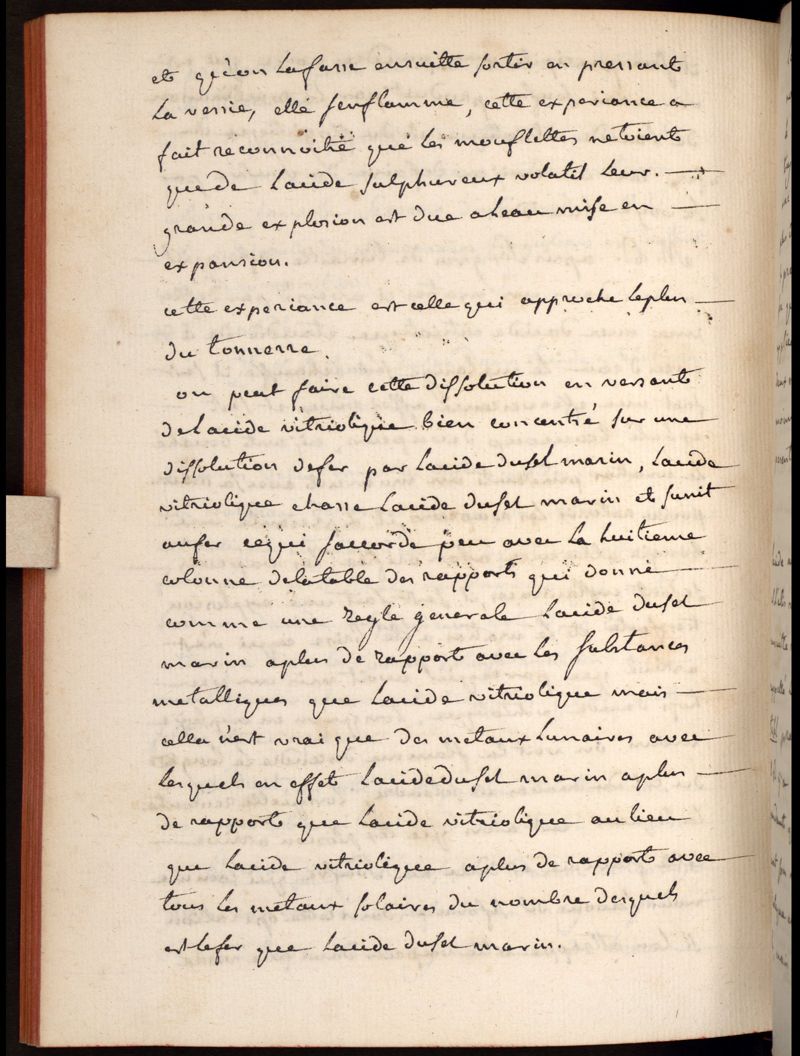 et qu'on La fasse ensuitte sortir en pressant
La vessie, elle s'enflamme, cette experiance a
fait reconnoitre que les mouflettes netoient
que de Lacide sulphureux volatil Leur. —
grande explosion est due a leau mise en —
expansion.
cette experiance est celle qui approche leplus —
du tonnerre.
on peut faire cette dissolution en versant
de Lacide vitriolique bien concentré sur une
dissolution defer par Lacide dusel marin, Lacide
vitriolique chasse Lacide dusel marin et sunit
aufer cequi saccorde peu avec La huitieme
colonne delatable des rapports qui donne —
comme une regle generale Lacide dusel
marin aplus de rapport avec les substances
metalliques que Lacide vitriolique mais —
cella n'est vrai que des metaux Lunaires avec
lesquels en effet Lacide dusel marin aplus —
de rapport que Lacide vitriolique aulieu
que Lacide vitriolique aplus de rapport avec
tous les metaux solaires du nombre desquels
est lefer que Lacide dusel marin.